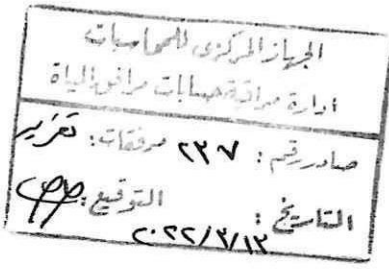 الجهاز المركزى للمحاسبات
ادارة مراقبة حسابات مرافق المياة
صادر رقم : ٢٣٧ مرفقات : تقرير
التاريخ : ٢٠٢٢/٣/١٣ التوقيع :